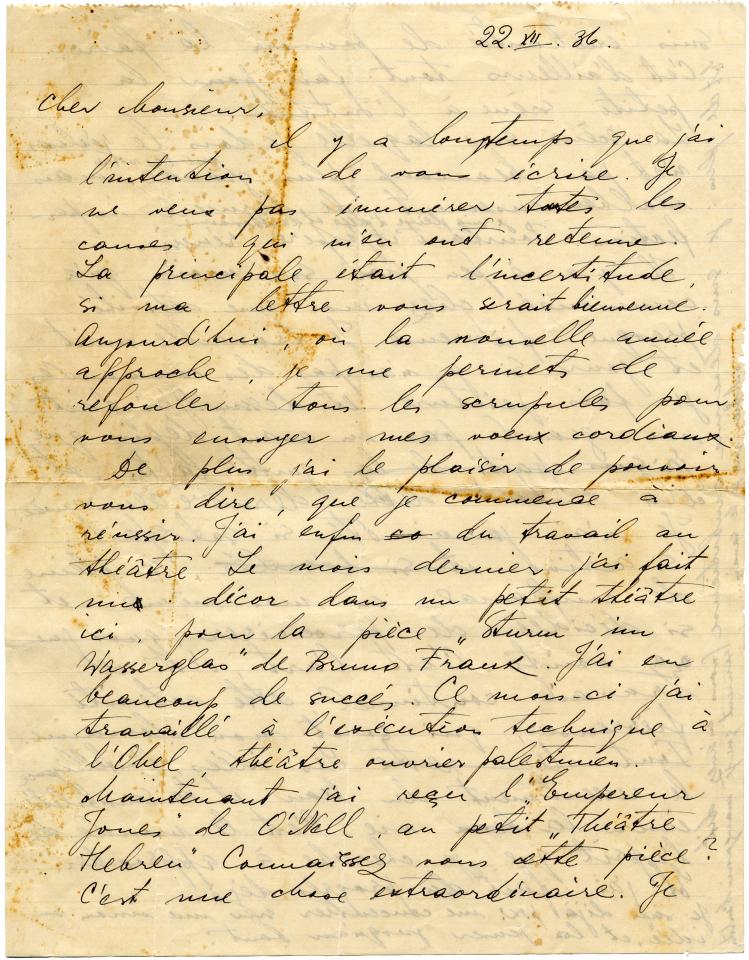 22. XII. 36.
Cher Monsieur,
il y a longtemps que j'ai
l'intention de vous écrire. Je
ne veux pas innumérer toutes les
causes qui m'en ont retenue.
La principale était l'incertitude,
si ma lettre vous serait bienvenue.
Aujourd'hui, où la nouvelle année
approche, je me permets de
refouler tous les scrupules pour
vous envoyer mes voeux cordiaux.
De plus j'ai le plaisir de pouvoir
vous dire, que je commence à
réussir. J'ai enfin du travail au
théâtre Le mois dernier j'ai fait
un décor dans un petit théâtre
ici, pour la pièce „Sturm im
Wasserglas" de Bruno Frank. J'ai eu
beaucoup de succés. Ce mois-ci j'ai
travaillé à l'exécution technique à
l'Ohel théâtre ouvrier palestinien.
Maintenant j'ai reçu l'„Empereur
Jones" de O'Nell, au petit „Théâtre
Hebreu" Connaissez vous cette pièce?
C'est une chose extraordinaire. Je